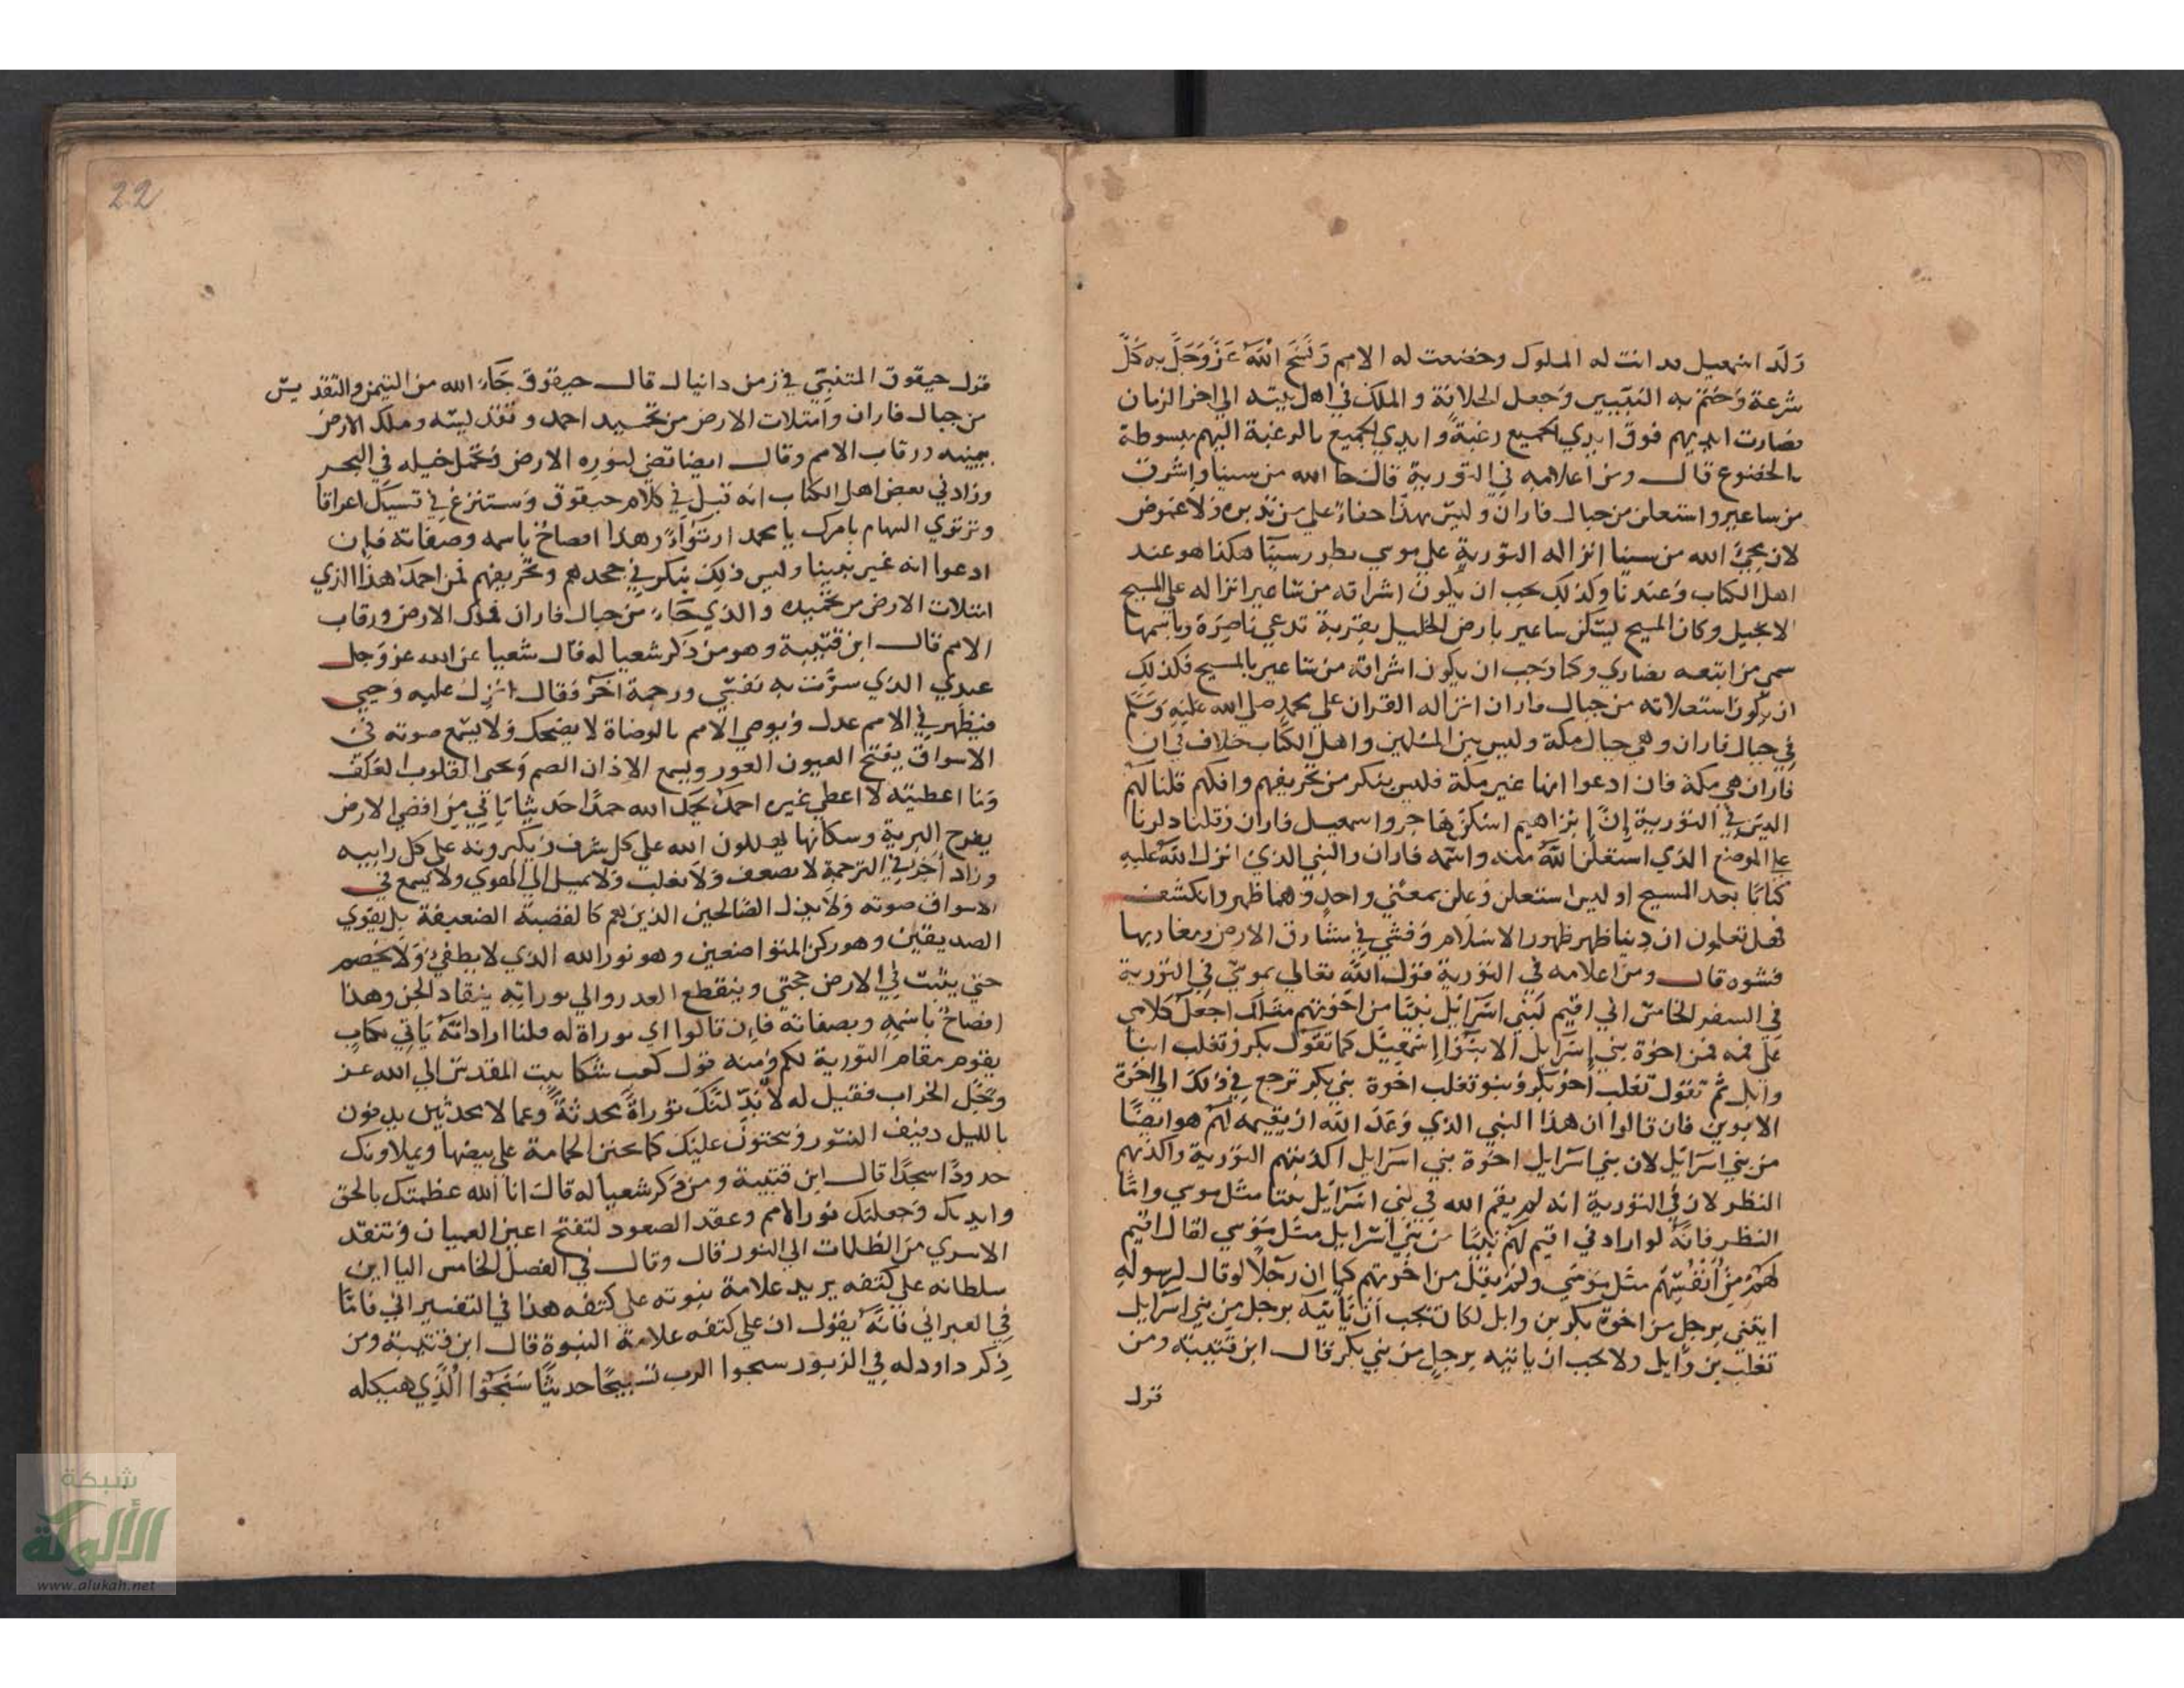 ولد اسمعيل بدانت له الملوك وخضعت له الامم ونسخ الله عز وجل به كل
شرعة وختم به النبيين وجعل الخلافة والملك في اهل بيته الى اخر الزمان
فصارت ايديهم فوق ايدي الجميع رغبة وايدي الجميع بالرغبة اليهم مبسوطة
بالخضوع قال ومن اعلامه في التورية قال جا الله من سينا واشرق
من ساعير واستعلن من جبال فاران وليس بهذا خفاء على من تدبره ولا غموض
لان مجئ الله من سينا انزاله التورية على موسى بطور سينا هكذا هو عند
اهل الكتاب وعندنا وكذلك يجب ان يكون اشراقه من ساعير انزاله على المسيح
الانجيل وكان المسيح يسكن ساعير بارض الخليل بقرية تدعي ناصرة وباسمها
سمي من اتبعه نصاري وكما وجب ان يكون اشراقه من ساعير بالمسيح فكذلك
ان يكون استعلاته من جبال فاران انزاله القران علي محمد صلى الله عليه وسلم
في جبال فاران وهي جبال مكة وليس بين المسلمين واهل الكتاب خلاف في ان
فاران هي مكة فان ادعوا انها غير مكة فليس بنكر من تحريفهم وافكهم قلنا لهم
اليس في التورية ان ابراهيم اسكن هاجر واسمعيل فاران وقلنا دلونا
على الموضع الذي استعلن الله منه واسمه فاران والنبي الذي انزل الله عليه
كتابا بعد المسيح او ليس استعلن وعلن بمعني واحد وهما ظهر وانكشف
فهل تعلمون ان دينا ظهر ظهور الاسلام وفشي في مشارق الارض ومغاربها
فشوه قال ومن اعلامه في التورية قول الله تعالى لموسى في التورية
في السفر الخامس اني اقيم لبني اسرائيل نبيا من اخوتهم مثلك اجعل كلامي
على فمه فمن اخوة بني اسرايل الا بنوا اسمعيل كما تقول بكر وتغلب ابنا
وايل ثم تقول تغلب اخو بكر وبنو تغلب اخوة بني بكر ترجع في ذلك الى اخوة
الابوين فان قالوا ان هذا النبي الذي وعد الله ان يقيمه لهم هو ايضا
من بني اسرائيل لان بني اسرايل اخوة بني اسرايل اكذبتهم التورية واكذبهم
النظر لان في التورية انه لم يقم الله في بني اسرائيل نبيا مثل موسي واما
النظر فانه لو اراد في اقيم لهم نبيا من بني اسرايل مثل موسي لقال اقيم
لهم من انفسهم مثل موسى ولم يقل من اخوتهم كما ان رجلا لو قال لرسوله
ايتني برجل من اخوة بكر بن وايل لكان يجب ان ياتيه برجل من بني اسرايل
تغلب بن وايل ولا يجب ان ياتيه برجل من بني بكر قال ابن قتيبة ومن
قول
22
قول حيقوق المتنبي في زمن دانيال قال حيقوق جاء الله من التيمن والتقديس
من جبال فاران وامتلات الارض من تحميد احمد وتقديسه وملك الارض
بيمينه ورقاب الامم وقال ايضا تضي لنوره الارض وتحمل خيله في البحر
وزادني بعض اهل الكتاب انه قيل في كلام حيقوق وستنزع في قسيك اغراقا
وترتوي السهام بامرك يا محمد ارتواء وهذا افصاح باسمه وصفاته فان
ادعوا انه غير نبينا وليس ذلك بنكر في جحدهم وتحريفهم فمن احمد هذا الذي
امتلات الارض من تحميده والذي جاء من جبال فاران فملك الارض ورقاب
الامم قال ابن قتيبة وهو من ذكر شعيا له قال شعيا عن الله عز وجل
عبدي الذي سرت به نفسي ورحمة اخر فقال انزل عليه وحيي
فيظهر في الامم عدل ويوصي الامم بالوصاة لا يضحك ولا يسمع صوته في
الاسواق يفتح العيون العور ويسمع الاذان الصم ويحيي القلوب الغلف
وما اعطيته لا اعطي غيره احمد يحمد الله حمدا حديثا ياتي من اقصى الارض
يفرح البرية وسكانها يهللون الله علي كل شرف ويكبرونه على كل رابيه
وزاد اخر في الترجمة لا يضعف ولا يغلب ولا يميل الي الهوي ولا يسمع في
الاسواق صوته ولا يذل الصالحين الذين هم كالقصبة الضعيفة بل يقوي
الصديقين وهو ركن المتواضعين وهو نور الله الذي لا يطفئ ولا يخصم
حتى يثبت في الارض حجتي وينقطع العذر والي توراته ينقاد الجن وهذا
افصاح باسمه وبصفاته فان قالوا اي توراة له قلنا اراد انه ياتي بكتاب
يقوم مقام التورية لكم ومنه قول كعب شكا بيت المقدس الى الله عز
وجل الخراب فقيل له لابدلنك توراة محدثة وعمالا محدثين يدفون
بالليل دفيف النسور ويحنون عليك كما تحنن الحمامة علي بيضها ويملاونك
خدودا سجدا قال ابن قتيبة ومن ذكر شعيا له قال انا الله عظمتك بالحق
وايدتك وجعلتك نور الامم وعقد الصعود لتفتح اعين العميان وتنقد
الاسري من الظلمات الى النور قال وقال في الفصل الخامس اليا اين
سلطانه على كتفه يريد علامة نبوته علي كتفه هذا في التفسير اني فاما
في العبراني فانه يقول ان علي كتفه علامة النبوة قال ابن قتيبة ومن
ذكر داود له في الزبور سبحوا الرب تسبيحا حديثا سبحوا الذي هيكله
شبكة
الألوكة
www.alukah.net